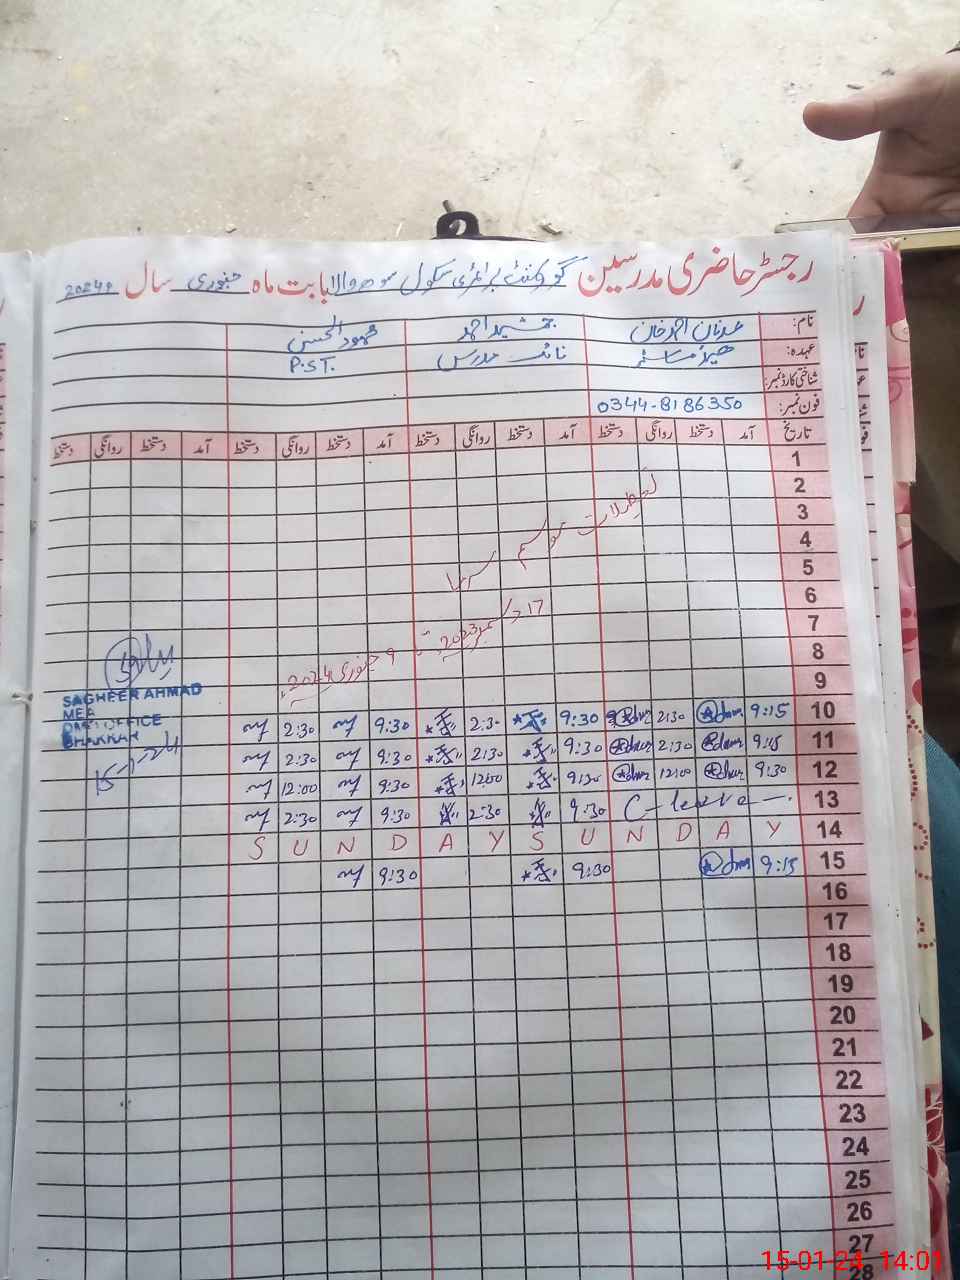 رجسٹر حاضری مدرسین گورنمنٹ پرائمری سکول بابت ماہ جنوری سال 2024ء
نام: عدنان احمد خان جمشید احمد محمود الحسن
عہدہ: ہیڈ ماسٹر نائب مدرس P.S.T.
شناختی کارڈ نمبر:
فون نمبر: 0344-8186350
تاریخ آمد دستخط روانگی دستخط آمد دستخط روانگی دستخط آمد دستخط روانگی دستخط آمد دستخط روانگی دستخط
1
2
3
تعطیلات موسم سرما
4
5
6
7
17 دسمبر 2023ء تا 9 جنوری 2024ء
8
9
SAGHEER AHMAD
MEA
OFFICE
BHAKKAR
15-1-24
10 9:15 2:30 9:30 2:30 9:30 2:30
11 9:15 2:30 9:30 2:30 9:30 2:30
12 9:30 12:00 9:30 12:00 9:30 12:00
13 C-leave 9:30 2:30 9:30 2:30
14 S U N D A Y S U N D A Y
15 9:15 9:30 9:30
16
17
18
19
20
21
22
23
24
25
26
27
28
15-01-24, 14:01